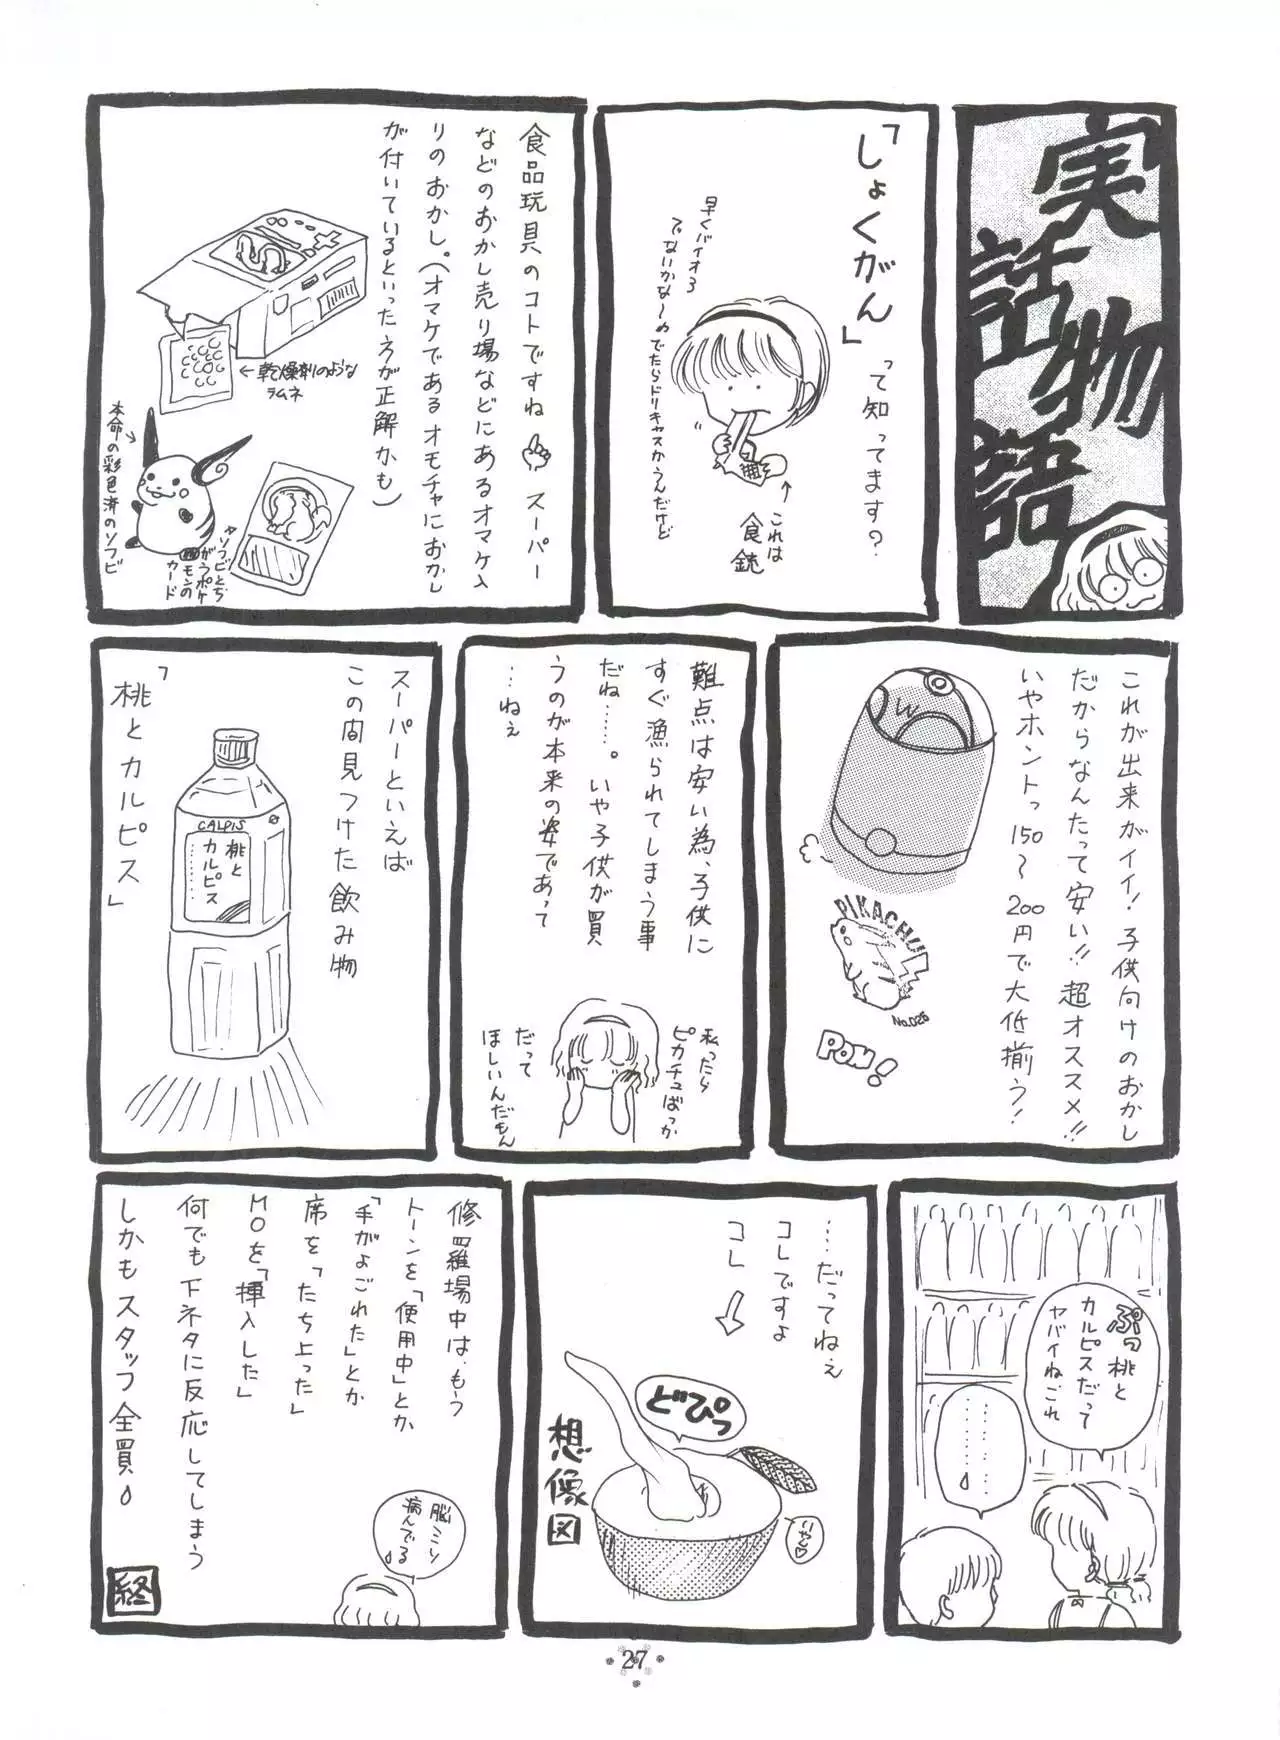 実話物語
「しょくがん」
って知ってます?
早くバイオ3
でないかな〜めでたらドリキャスかうんだけど
これは
食銃
食品玩具のコトですね☝スーパー
などのおかし売り場などにあるオマケ入
りのおかし。(オマケであるオモチャにおかし
が付いているといった方が正解かも)
←乾燥剤のような
ラムネ
本命の彩色済のソフビ
ソフビとち
がうポケ
モンの
カード
これが出来がイイ!子供向けのおかし
だからなんたって安い!!超オススメ!!
いやホントっ150〜200円で大低揃う!
PIKACHU
No.026
POM!
難点は安い為、子供に
すぐ漁られてしまう事
だね……。いや子供が買
うのが本来の姿であって
…ねぇ
私ったら
ピカチュばっか
だって
ほしいんだもん
スーパーといえば
この間見つけた飲み物
「桃とカルピス」
CALPIS
桃と
カルピス
ぷっ桃と
カルピスだって
ヤバイねこれ
………
……
……だってねぇ
コレですよ
コレ
どぴっ
いやん♡
想像図
修羅場中は、もう
トーンを「使用中」とか
「手がよごれた」とか
席を「たち上った」
MOを「挿入した」
何でも下ネタに反応してしまう
しかもスタッフ全員
脳ミソ
病んでる
終
27